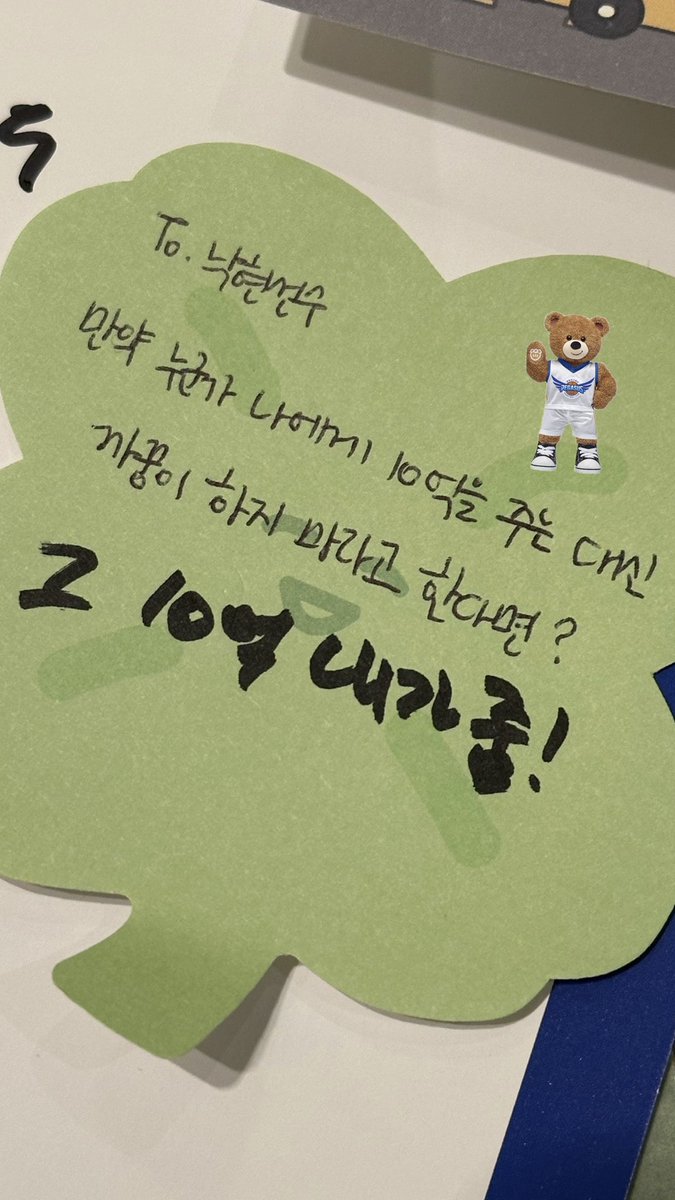 To. 낙현선수
만약 누군가 나에게 10억을 주는 대신
까꿍이 하지 마라고 한다면?
그 10억 내가 줌!
PEGASUS